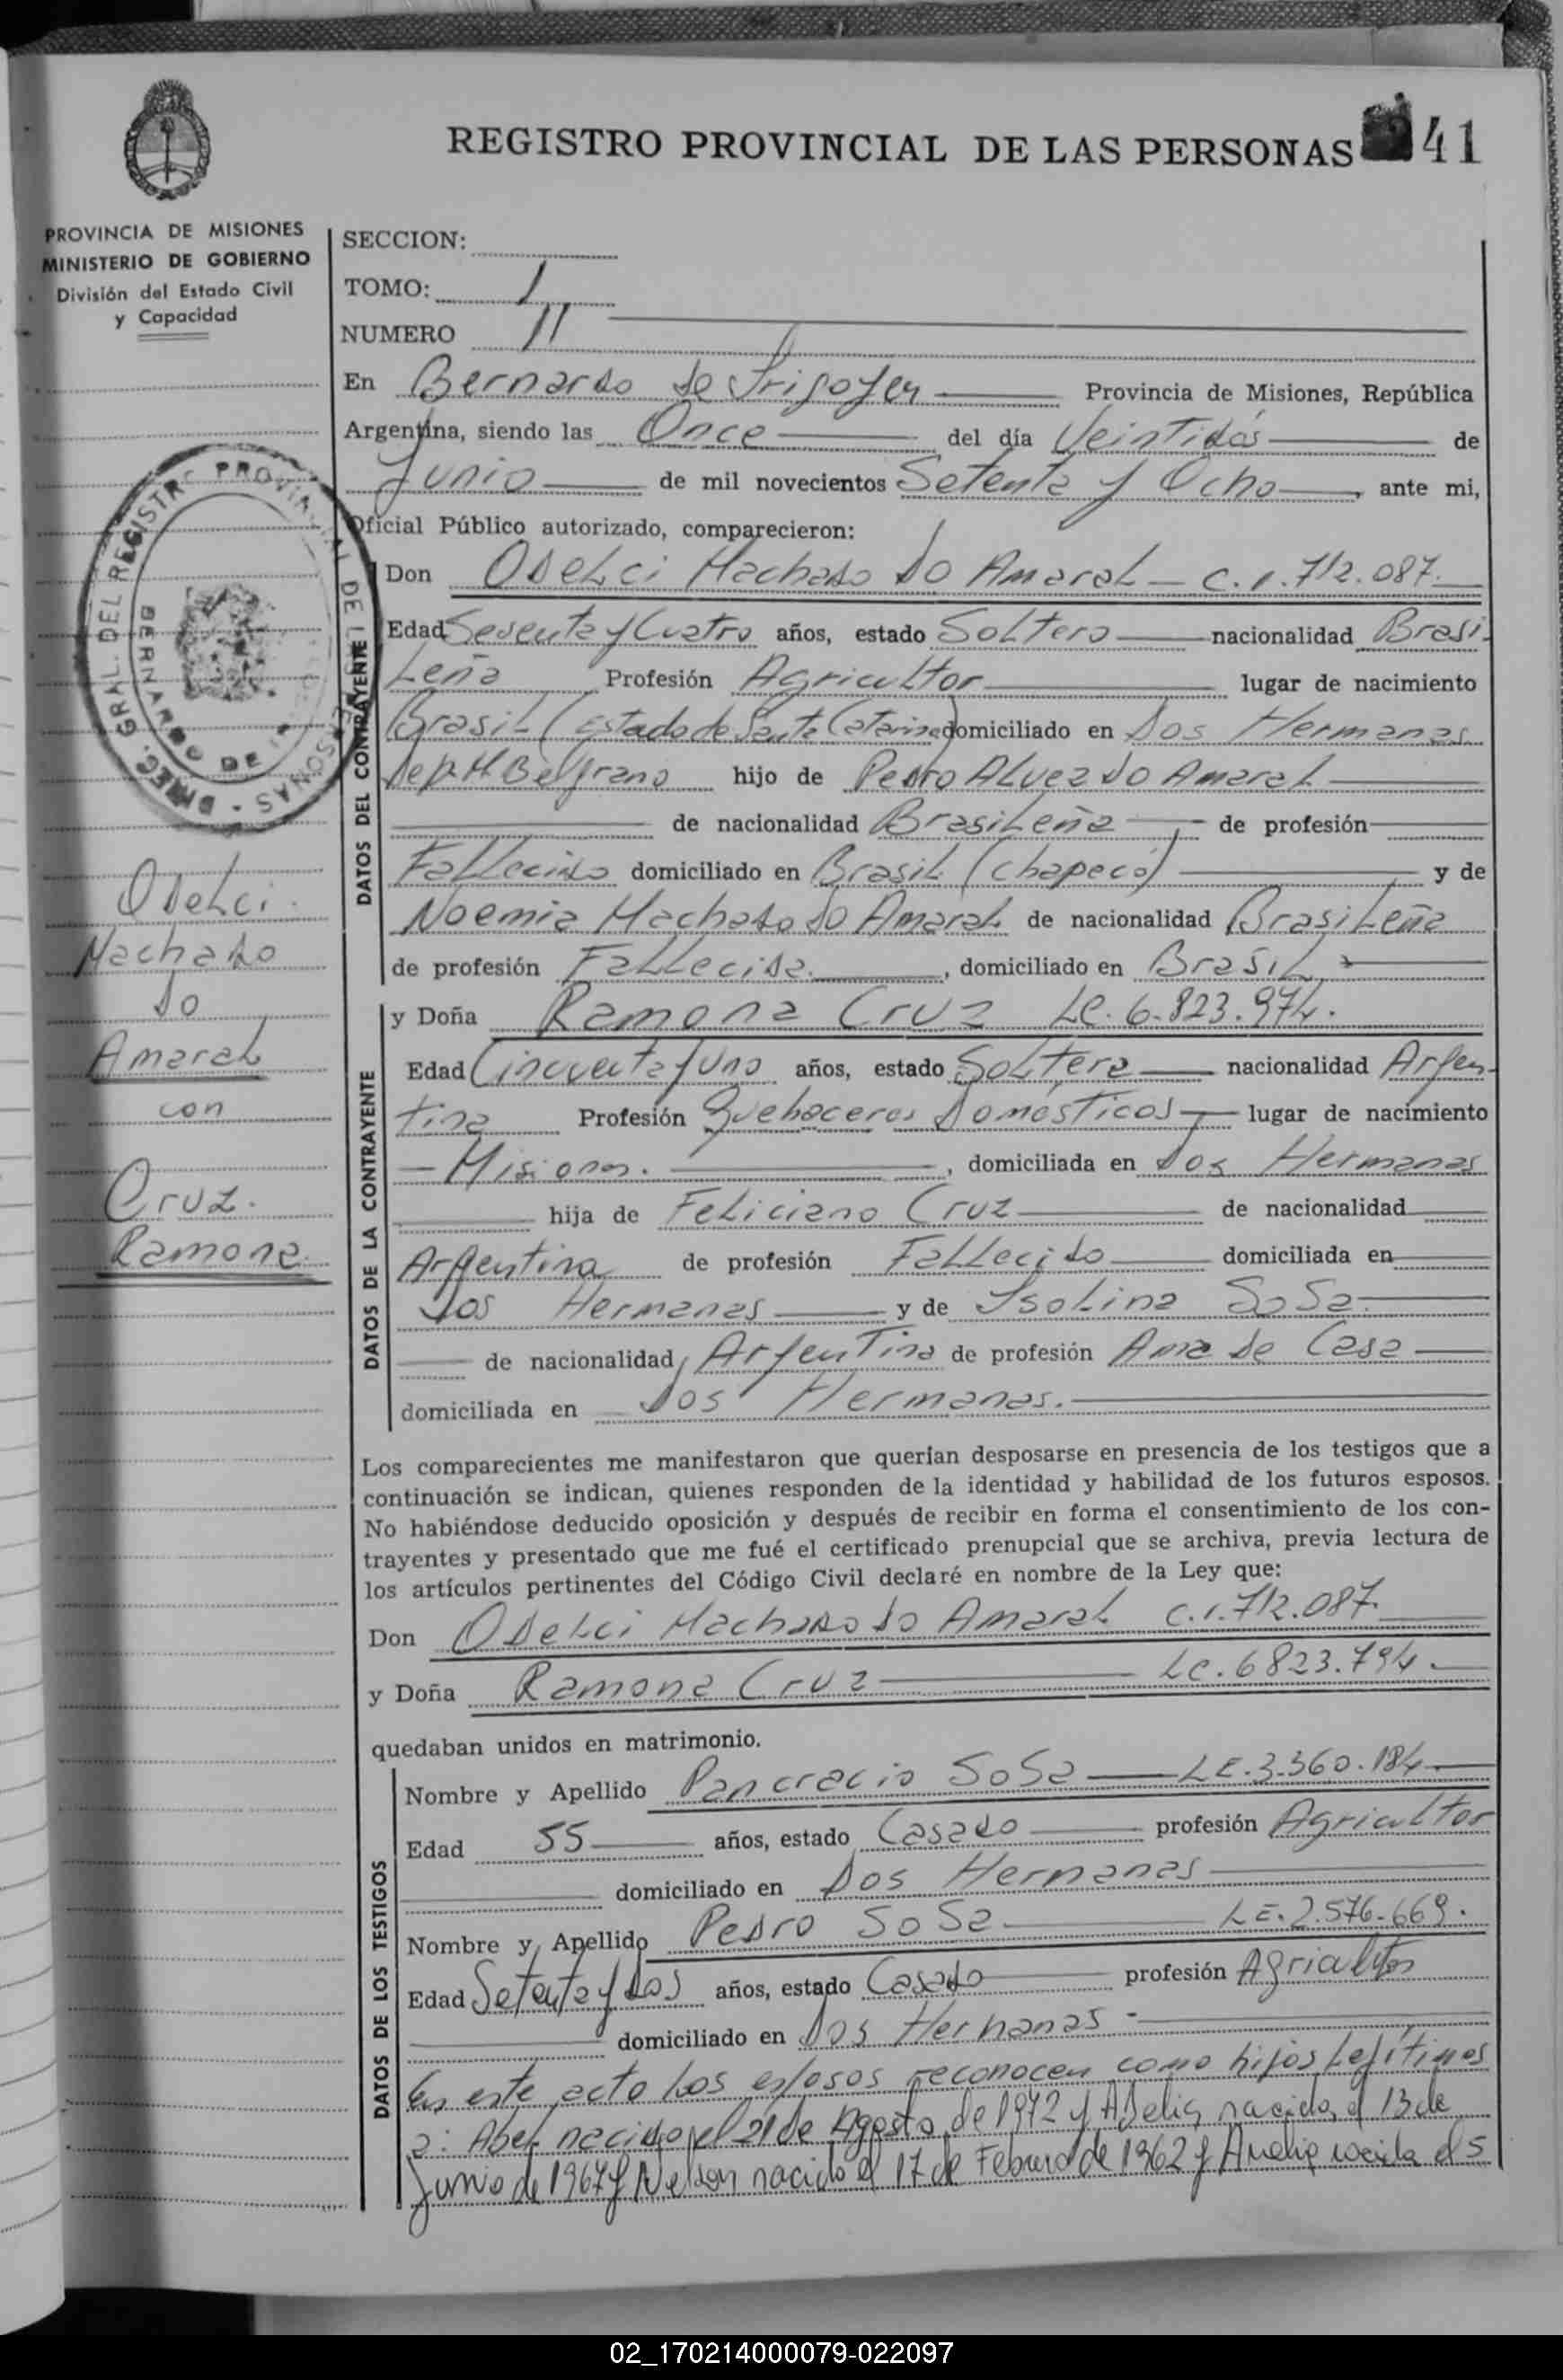 REGISTRO PROVINCIAL DE LAS PERSONAS 41
PROVINCIA DE MISIONES
MINISTERIO DE GOBIERNO
División del Estado Civil
y Capacidad
SECCION:
TOMO: 1
NUMERO 11
En Bernardo de Irigoyen Provincia de Misiones, República
Argentina, siendo las Once del día Veintidós de
Junio de mil novecientos Setenta y Ocho, ante mi,
Oficial Público autorizado, comparecieron:
DATOS DEL CONTRAYENTE
Don Odelci Machado do Amaral - C.I. 712.087.
Edad Sesenta y Cuatro años, estado Soltero nacionalidad Brasi-
leña Profesión Agricultor lugar de nacimiento
Brasil (Estado de Santa Catarina) domiciliado en Dos Hermanas
Dep. M Belgrano hijo de Pedro Alvez do Amaral
de nacionalidad Brasileña, de profesión
Fallecido domiciliado en Brasil (Chapecó) y de
Noemia Machado do Amaral de nacionalidad Brasileña
de profesión Fallecida, domiciliado en Brasil
DATOS DE LA CONTRAYENTE
y Doña Ramona Cruz LC. 6.823.974.
Edad Cincuenta y Uno años, estado Soltera nacionalidad Argen-
tina Profesión Quehaceres Domésticos, lugar de nacimiento
Misiones., domiciliada en Dos Hermanas
hija de Feliciano Cruz de nacionalidad
Argentina de profesión Fallecido domiciliada en
Dos Hermanas y de Isolina Sosa
de nacionalidad Argentina de profesión Ama de Casa
domiciliada en Dos Hermanas.
Los comparecientes me manifestaron que querían desposarse en presencia de los testigos que a
continuación se indican, quienes responden de la identidad y habilidad de los futuros esposos.
No habiéndose deducido oposición y después de recibir en forma el consentimiento de los con-
trayentes y presentado que me fué el certificado prenupcial que se archiva, previa lectura de
los artículos pertinentes del Código Civil declaré en nombre de la Ley que:
Don Odelci Machado do Amaral C.I. 712.087.
y Doña Ramona Cruz LC. 6823.794.
quedaban unidos en matrimonio.
DATOS DE LOS TESTIGOS
Nombre y Apellido Pancracio Sosa LE. 3.360.184.
Edad 55 años, estado Casado profesión Agricultor
domiciliado en Dos Hermanas
Nombre y Apellido Pedro Sosa LE. 2.576.669.
Edad Setenta y dos años, estado Casado profesión Agricultor
domiciliado en Dos Hermanas -
En este acto los esposos reconocen como hijos Legítimos
a: Abel nacido el 21 de Agosto de 1972 y Adelia nacida el 13 de
Junio de 1967 y Nelson nacido el 17 de Febrero de 1962 y Amelia nacida el 5
Odelci
Machado
do
Amaral
con
Cruz.
Ramona.
DIREC. GRAL. DEL REGISTRO PROVINCIAL DE LAS PERSONAS
BERNARDO DE
02_170214000079-022097